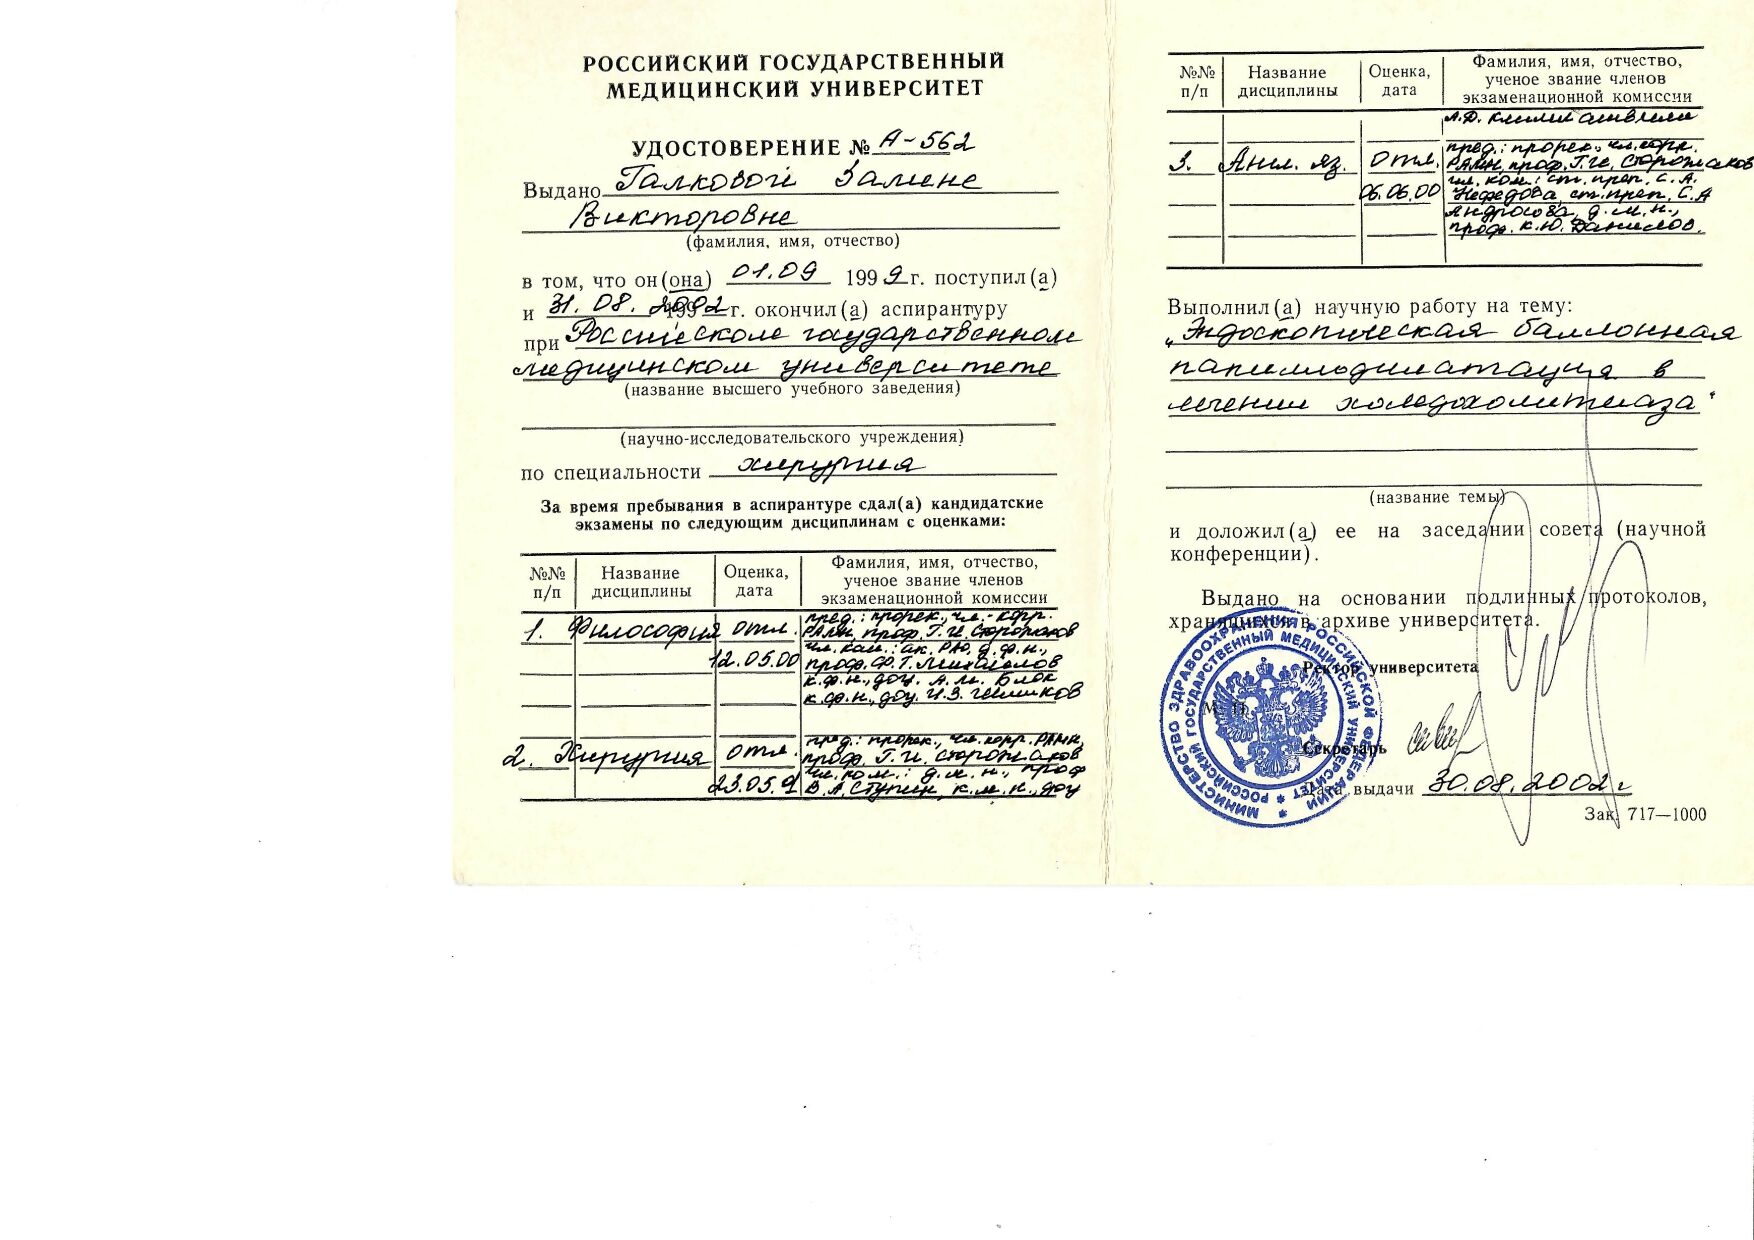 РОССИЙСКИЙ ГОСУДАРСТВЕННЫЙ
МЕДИЦИНСКИЙ УНИВЕРСИТЕТ
УДОСТОВЕРЕНИЕ № А-562
Выдано Галковой Залине
Викторовне
(фамилия, имя, отчество)
в том, что он(она) 01.09 1999 г. поступил(а)
и 31.08.2002 г. окончил(а) аспирантуру
при Российском государственном
медицинском университете
(название высшего учебного заведения)
(научно-исследовательского учреждения)
по специальности хирургия
За время пребывания в аспирантуре сдал(а) кандидатские
экзамены по следующим дисциплинам с оценками:
№№ п/п Название дисциплины Оценка, дата Фамилия, имя, отчество,
ученое звание членов
экзаменационной комиссии
1. Философия отл. пред.: прорек., чл.-корр.
РАМН, проф. Г.И. Сторожаков
12.05.00 чл. ком.: ак. РАО, д.ф.н.,
проф. Ф.Т. Михайлов
к.ф.н., доц. А.М. Блок
к.ф.н., доц. И.З. Шишков
2. Хирургия отл. пред.: прорек., чл.корр. РАМН,
проф. Г.И. Сторожаков
чл. ком.: д.м.н., проф
23.05. В.А. Ступин, к.м.н., доц
№№ п/п Название дисциплины Оценка, дата Фамилия, имя, отчество,
ученое звание членов
экзаменационной комиссии
3. Англ. яз. отл. пред.: прорек., чл.корр.
РАМН, проф. Г.И. Сторожаков
чл. ком.: ст. преп. С.А.
06.06.00 Нефедова, ст. преп. С.А
Андросова, д.м.н.,
проф. К.Ю. Данилов.
Выполнил(а) научную работу на тему:
„Эндоскопическая баллонная
папиллодилатация в
лечении холедохолитиаза"
(название темы)
и доложил(а) ее на заседании совета (научной
конференции).
Выдано на основании подлинных протоколов,
хранящихся в архиве университета.
Ректор университета
М. П.
Секретарь
Дата выдачи 30.08.2002 г
Зак. 717—1000
МИНИСТЕРСТВО ЗДРАВООХРАНЕНИЯ РОССИЙСКОЙ ФЕДЕРАЦИИ
РОССИЙСКИЙ ГОСУДАРСТВЕННЫЙ МЕДИЦИНСКИЙ УНИВЕРСИТЕТ